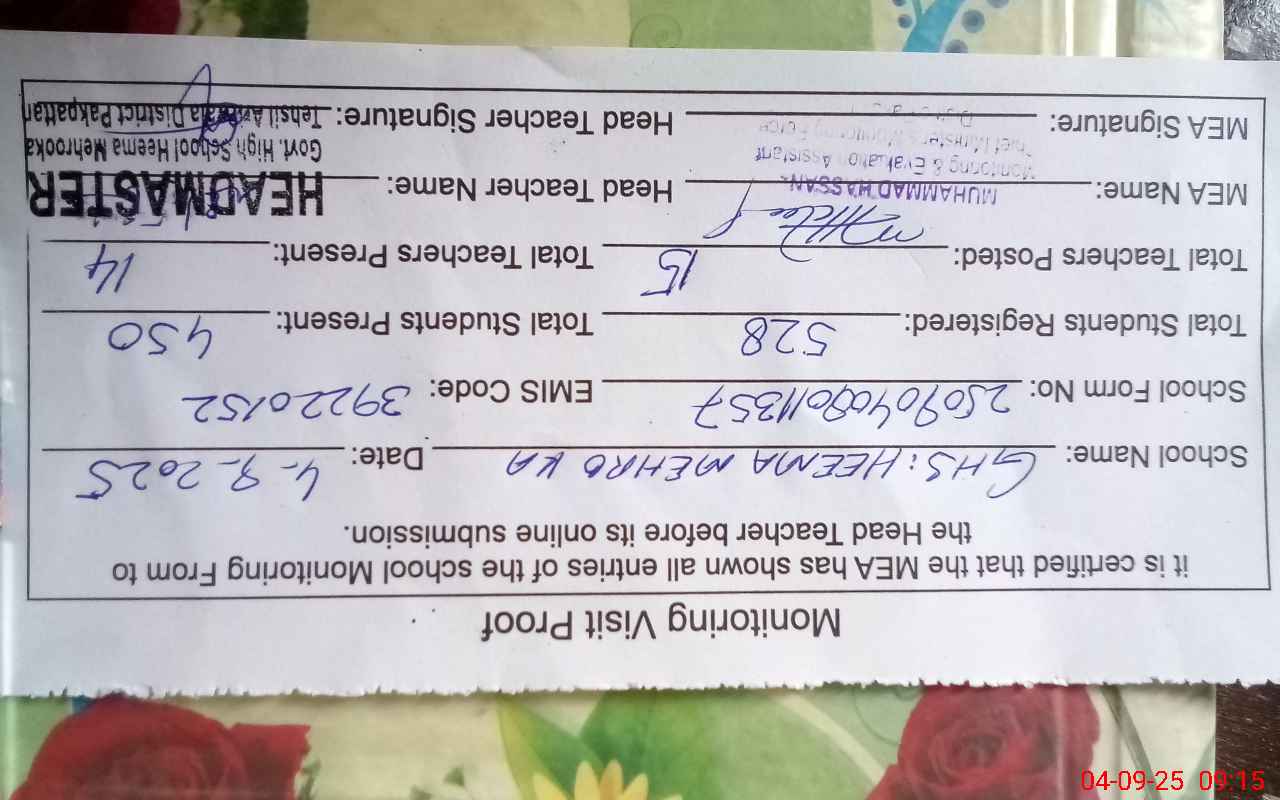 Monitoring Visit Proof
it is certified that the MEA has shown all entries of the school Monitoring From to
the Head Teacher before its online submission.
School Name: GHS: HEEMA MEHRO KA Date: 4-9-2025
School Form No: EMIS Code: 39220152
Total Students Registered: 528 Total Students Present: 450
Total Teachers Posted: 15 Total Teachers Present: 14
MEA Name: MUHAMMAD HASSAN Head Teacher Name: HEADMASTER
Monitoring & Evaluation Assistant Govt. High School Heema Mehrooka
Chief Minister's Monitoring Force
MEA Signature: Head Teacher Signature: Tehsil Arifwala District Pakpattan
04-09-25 09:15